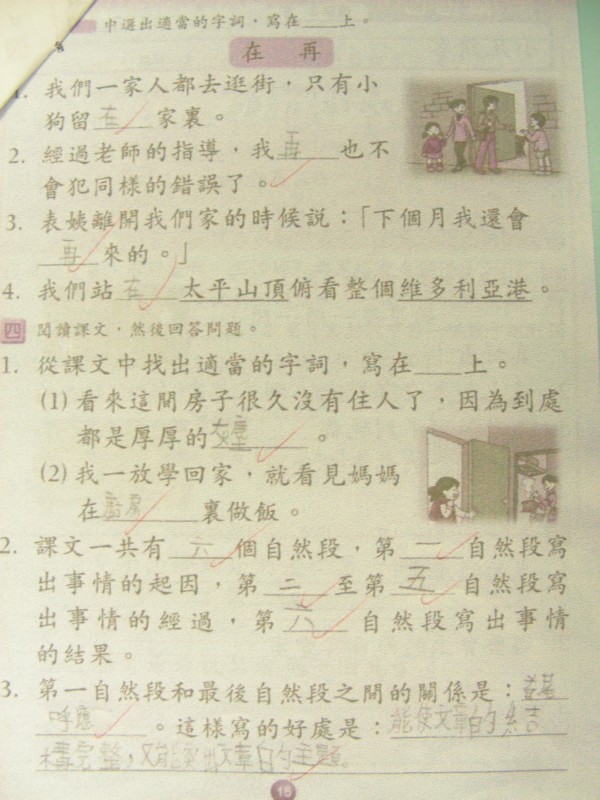 中選出適當的字詞，寫在____上。
在 再
1. 我們一家人都去逛街，只有小
狗留在家裏。
2. 經過老師的指導，我再也不
會犯同樣的錯誤了。
3. 表姨離開我們家的時候說：「下個月我還會
再來的。」
4. 我們站在太平山頂俯看整個維多利亞港。
四 閱讀課文，然後回答問題。
1. 從課文中找出適當的字詞，寫在____上。
(1) 看來這間房子很久沒有住人了，因為到處
都是厚厚的灰塵。
(2) 我一放學回家，就看見媽媽
在廚房裏做飯。
2. 課文一共有六個自然段，第一自然段寫
出事情的起因，第二至第五自然段寫
出事情的經過，第六自然段寫出事情
的結果。
3. 第一自然段和最後自然段之間的關係是：首尾
呼應。這樣寫的好處是：能使文章的結
構完整，又能突出文章的主題。
18